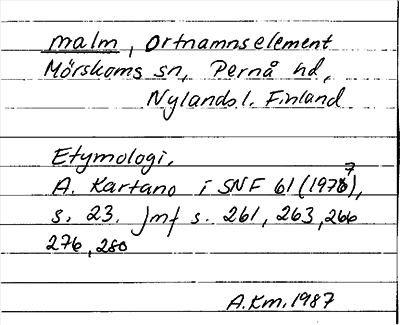 malm, Ortnamnselement
Mörskoms sn, Pernå hd,
Nylands l. Finland
Etymologi.
A. Kartano i SNF 61 (1977),
s. 23. Jmf s. 261, 263, 266
276, 280
A.Km. 1987